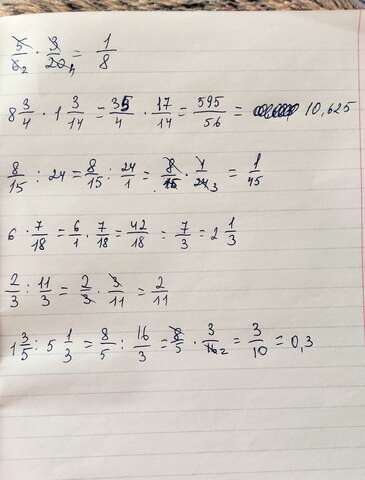 5/6₂ · 3/20₄ = 1/8
8 3/4 · 1 3/14 = 35/4 · 17/14 = 595/56 = 10,625
8/15 : 24 = 8/15 : 24/1 = 8/15 · 1/24₃ = 1/45
6 · 7/18 = 6/1 · 7/18 = 42/18 = 7/3 = 2 1/3
2/3 : 11/3 = 2/3 · 3/11 = 2/11
1 3/5 : 5 1/3 = 8/5 : 16/3 = 8/5 · 3/16₂ = 3/10 = 0,3